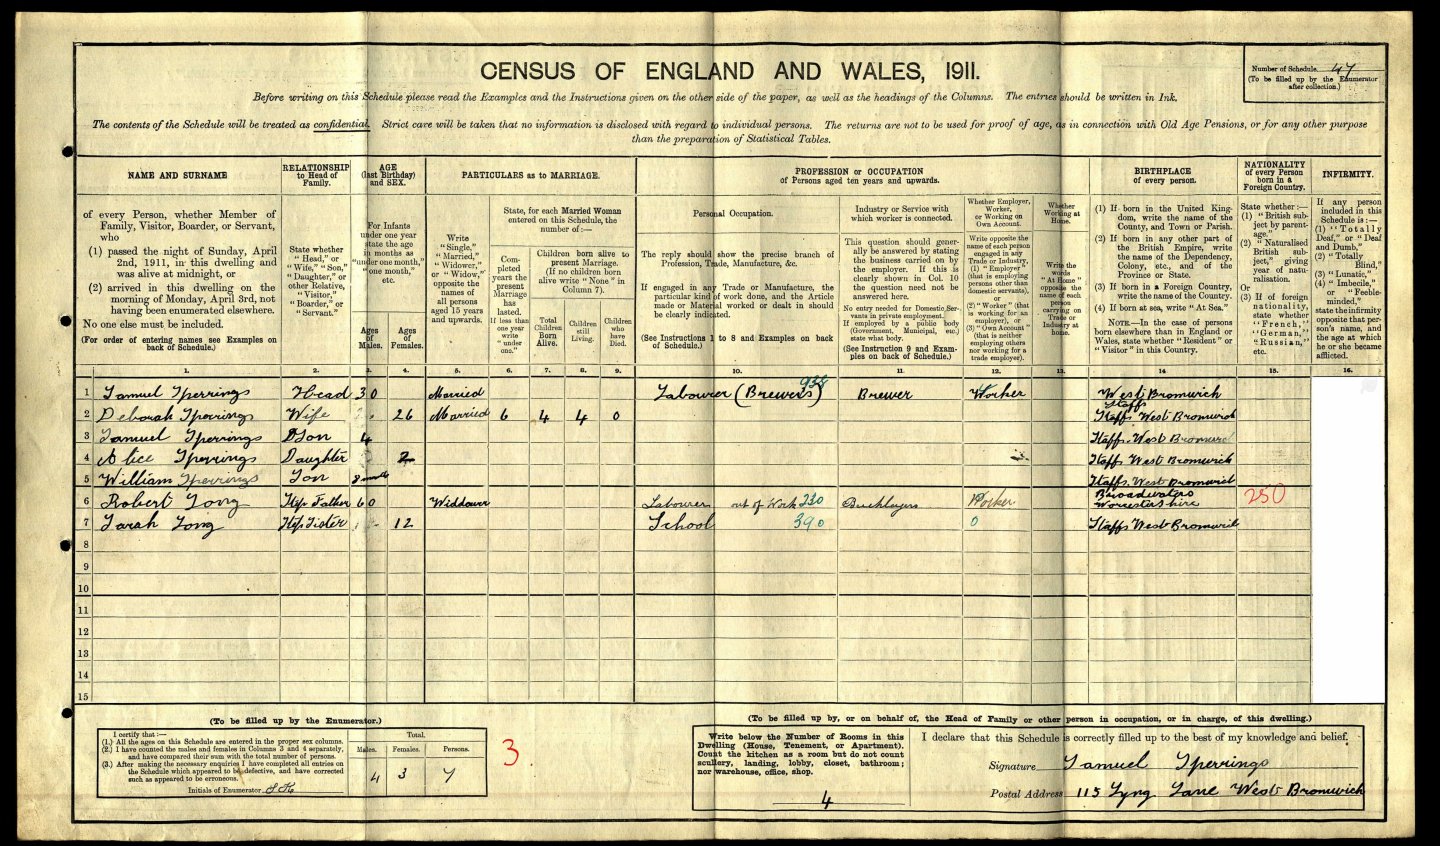 CENSUS OF ENGLAND AND WALES, 1911.
Number of Schedule 47
(To be filled up by the Enumerator
after collection.)
Before writing on this Schedule please read the Examples and the Instructions given on the other side of the paper, as well as the headings of the Columns. The entries should be written in Ink.
The contents of the Schedule will be treated as confidential. Strict care will be taken that no information is disclosed with regard to individual persons. The returns are not to be used for proof of age, as in connection with Old Age Pensions, or for any other purpose
than the preparation of Statistical Tables.
NAME AND SURNAME
of every Person, whether Member of
Family, Visitor, Boarder, or Servant,
who
(1) passed the night of Sunday, April
2nd, 1911, in this dwelling and
was alive at midnight, or
(2) arrived in this dwelling on the
morning of Monday, April 3rd, not
having been enumerated elsewhere.
No one else must be included.
(For order of entering names see Examples on
back of Schedule.)
RELATIONSHIP
to Head of
Family.
State whether
"Head," or
"Wife," "Son,"
"Daughter," or
other Relative,
"Visitor,"
"Boarder," or
"Servant."
AGE
(last Birthday)
and SEX.
For Infants
under one year
state the age
in months as
"under one month,"
"one month,"
etc.
Ages
of
Males.
Ages
of
Females.
PARTICULARS as to MARRIAGE.
Write
"Single,"
"Married,"
"Widower,"
or "Widow,"
opposite the
names of
all persons
aged 15 years
and upwards.
State, for each Married Woman
entered on this Schedule, the
number of:—
Completed
years the
present
Marriage
has
lasted.
If less than
one year
write
"under
one."
Children born alive to
present Marriage.
(If no children born
alive write "None" in
Column 7).
Total
Children
Born
Alive.
Children
still
Living.
Children
who
have
Died.
PROFESSION or OCCUPATION
of Persons aged ten years and upwards.
Personal Occupation.
The reply should show the precise branch of
Profession, Trade, Manufacture, &c.
If engaged in any Trade or Manufacture, the
particular kind of work done, and the Article
made or Material worked or dealt in should
be clearly indicated.
(See Instructions 1 to 8 and Examples on back
of Schedule.)
Industry or Service with
which worker is connected.
This question should gener-
ally be answered by stating
the business carried on by
the employer. If this is
clearly shown in Col. 10
the question need not be
answered here.
No entry needed for Domestic Ser-
vants in private employment.
If employed by a public body
(Government, Municipal, etc.)
state what body.
(See Instruction 9 and Exam-
ples on back of Schedule.)
Whether Employer,
Worker,
or Working on
Own Account.
Write opposite the
name of each person
engaged in any
Trade or Industry,
(1) "Employer"
(that is employing
persons other than
domestic servants),
or
(2) "Worker" (that
is working for an
employer), or
(3) "Own Account"
(that is neither
employing others
nor working for a
trade employer).
Whether
Working at
Home.
Write the
words
"At Home"
opposite the
name of each
person
carrying on
Trade or
Industry at
home.
BIRTHPLACE
of every person.
(1) If born in the United King-
dom, write the name of the
County, and Town or Parish.
(2) If born in any other part of
the British Empire, write
the name of the Dependency,
Colony, etc., and of the
Province or State.
(3) If born in a Foreign Country,
write the name of the Country.
(4) If born at sea, write "At Sea."
NOTE.—In the case of persons
born elsewhere than in England or
Wales, state whether "Resident" or
"Visitor" in this Country.
NATIONALITY
of every Person
born in a
Foreign Country.
State whether:—
(1) "British sub-
ject by parent-
age."
(2) "Naturalised
British sub-
ject," giving
year of natu-
ralisation.
Or
(3) If of foreign
nationality,
state whether
"French,"
"German,"
"Russian,"
etc.
INFIRMITY.
If any person
included in this
Schedule is:—
(1) "Totally
Deaf," or "Deaf
and Dumb,"
(2) "Totally
Blind,"
(3) "Lunatic,"
(4) "Imbecile,"
or "Feeble-
minded,"
state the infirmity
opposite that per-
son's name, and
the age at which
he or she became
afflicted.
1. 2. 3. 4. 5. 6. 7. 8. 9. 10. 11. 12. 13. 14 15. 16.
1 Samuel Sperrings Head 30 Married Labourer (Brewers) 938 Brewer Worker West Bromwich Staffs
2 Deborah Sperrings Wife 26 Married 6 4 4 0 Staffs West Bromwich
3 Samuel Sperrings Son 4 Staffs. West Bromwich
4 Alice Sperrings Daughter 2 Staffs West Bromwich
5 William Sperrings Son 3 month Staffs. West Bromwich
6 Robert Long Step Father 60 Widdower Labourer out of Work 220 Bricklayers Worker Broadwaters Worcestershire 250
7 Sarah Long Step Sister 12 School 390 0 Staffs West Bromwich
8
9
10
11
12
13
14
15
(To be filled up by the Enumerator.)
I certify that:—
(1.) All the ages on this Schedule are entered in the proper sex columns.
(2.) I have counted the males and females in Columns 3 and 4 separately,
and have compared their sum with the total number of persons.
(3.) After making the necessary enquiries I have completed all entries on
the Schedule which appeared to be defective, and have corrected
such as appeared to be erroneous.
Initials of Enumerator
Total.
Males. Females. Persons.
4 3 7
3.
(To be filled up by, or on behalf of, the Head of Family or other person in occupation, or in charge, of this dwelling.)
Write below the Number of Rooms in this
Dwelling (House, Tenement, or Apartment).
Count the kitchen as a room but do not count
scullery, landing, lobby, closet, bathroom;
nor warehouse, office, shop.
4
I declare that this Schedule is correctly filled up to the best of my knowledge and belief.
Signature Samuel Sperrings
Postal Address 115 Lyng Lane West Bromwich